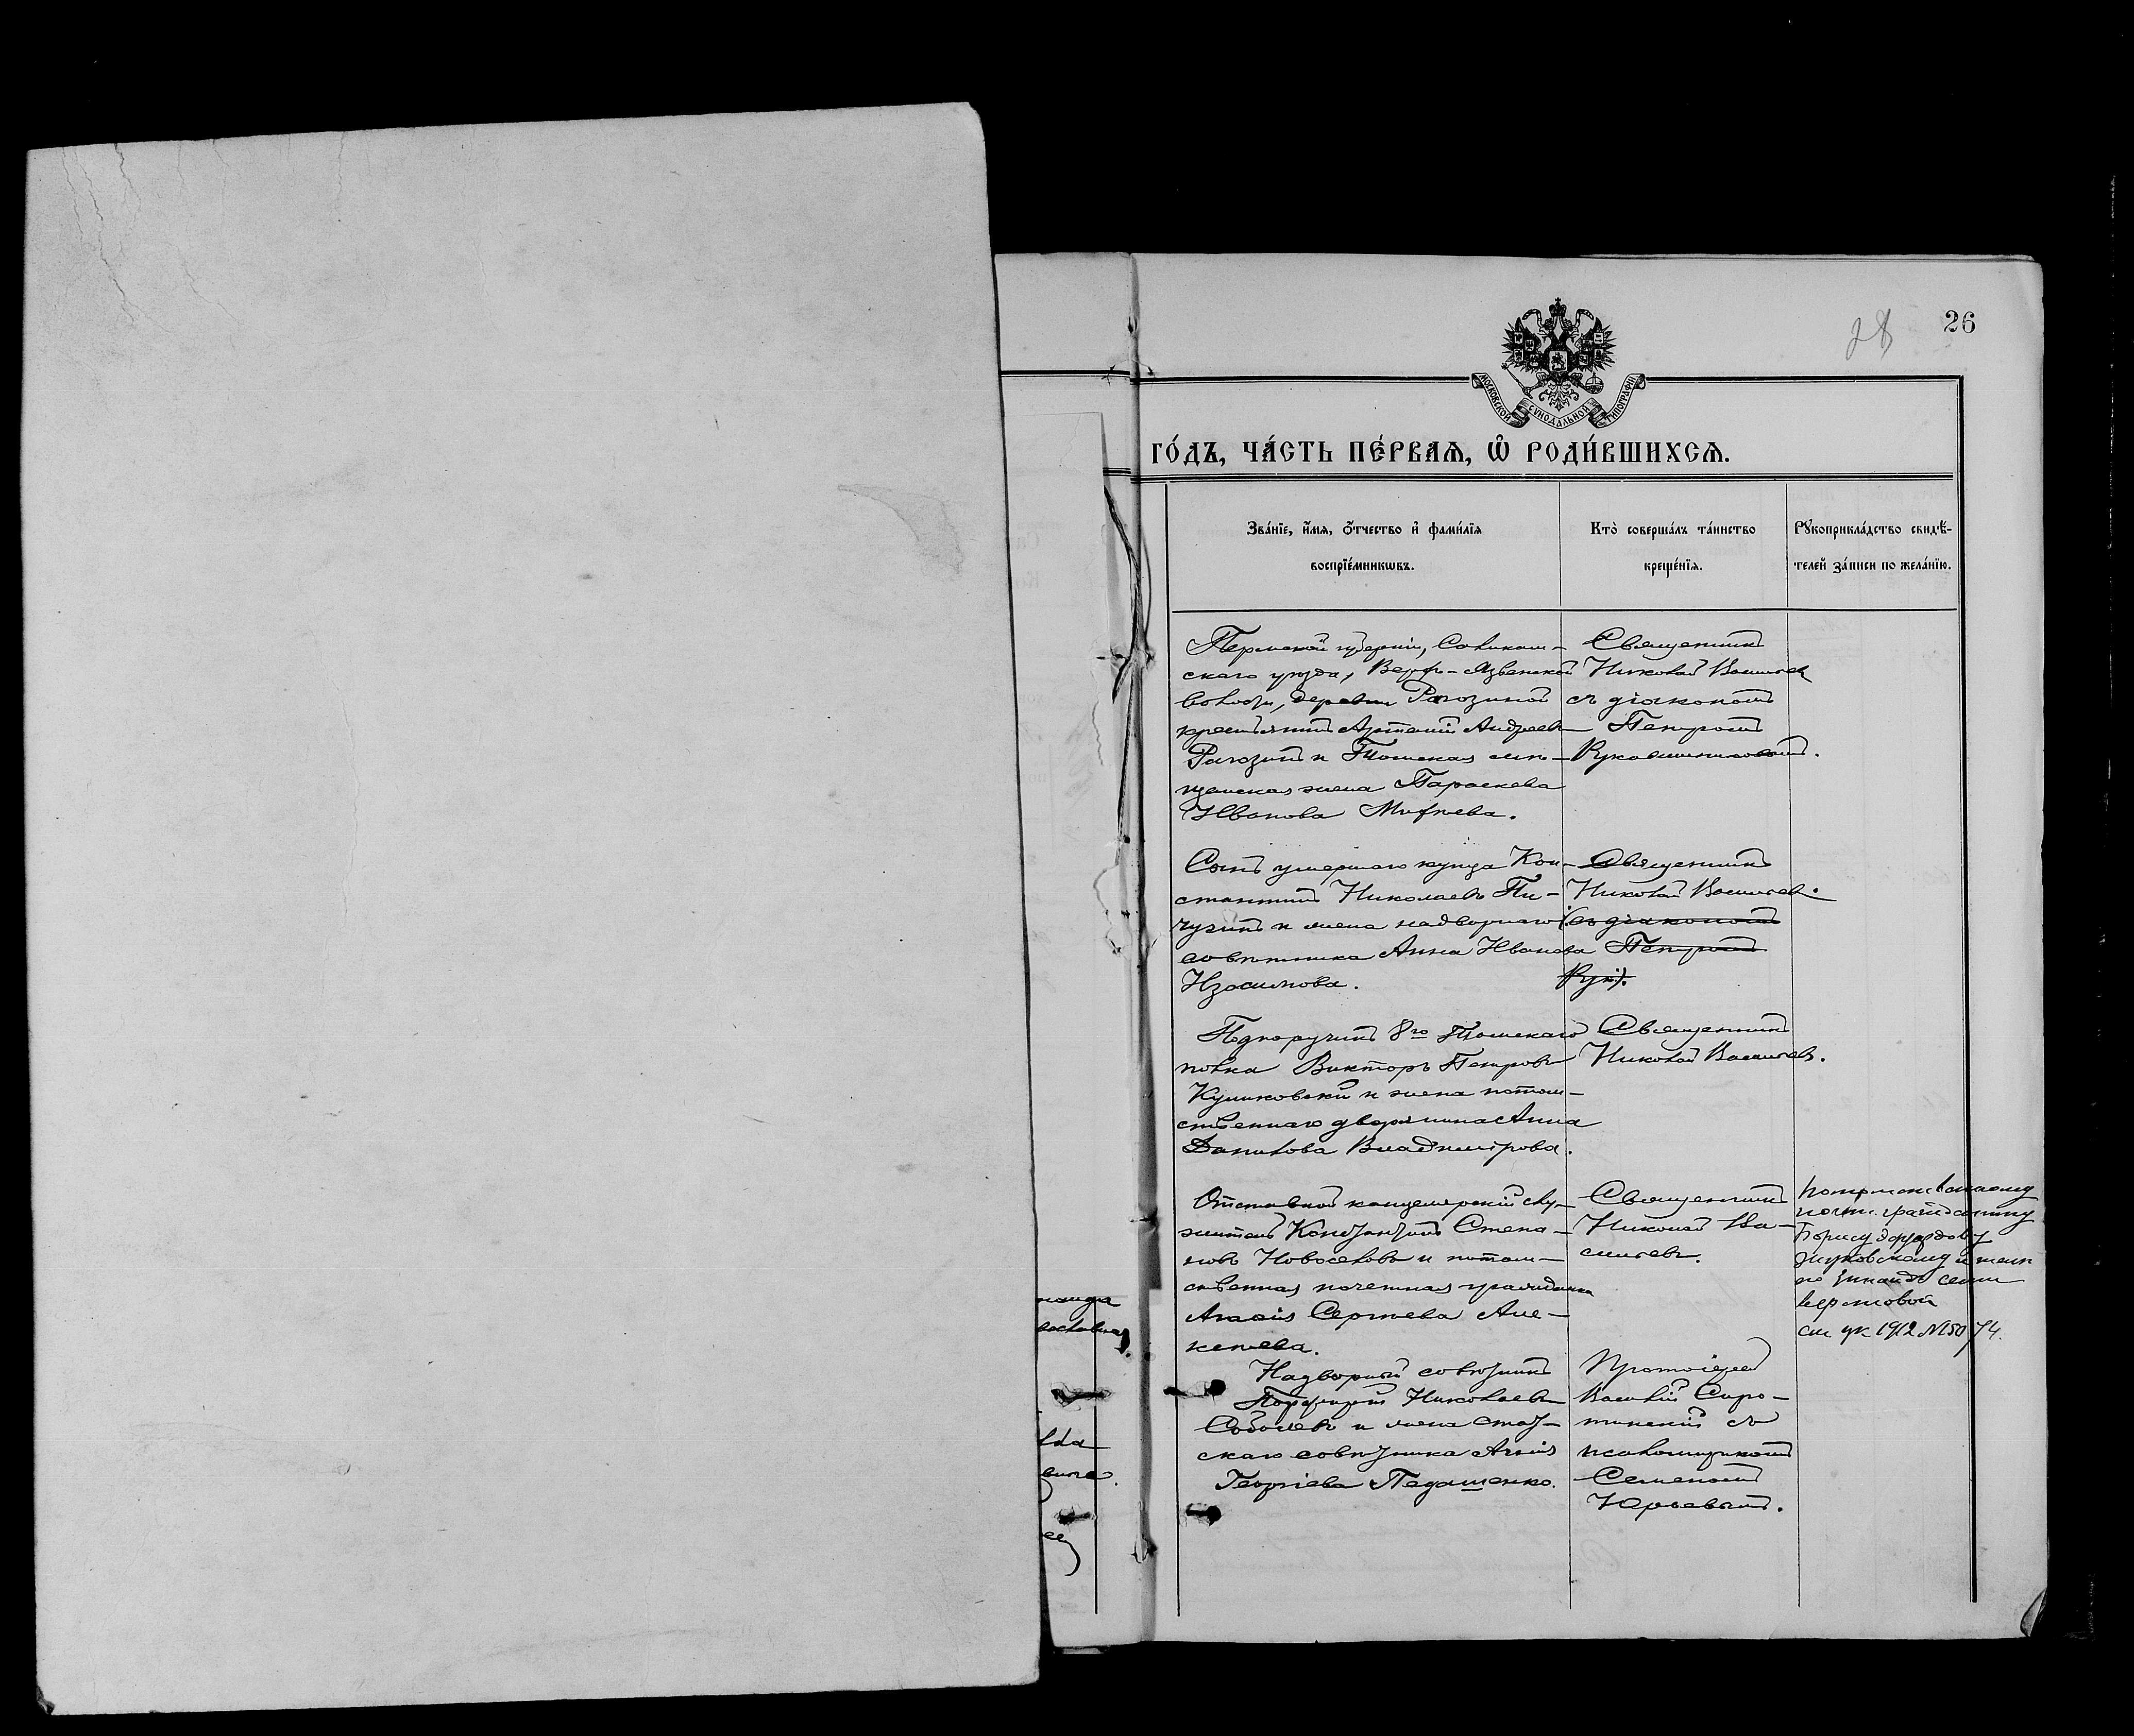 26
28
МОСКОВСКОЙ СѴНОДАЛЬНОЙ ТИПОГРАФІИ
ГО́ДЪ, ЧА́СТЬ ПЕ́РВАѦ, Ѡ҆ РОДИ́ВШИХСѦ.
Зва́нїе, и҆́мѧ, ѻ҆́тчество и҆ фами́лїѧ
воспрїе́мникѡвъ.
Кто̀ соверша́лъ та́инство
креще́нїѧ.
Рꙋкоприкла́дство свидѣ́-
телей за́писи по жела́нїю.
Пермской губерніи, Соликам-
скаго уѣзда, Верхъ-Язвенской
волости, деревни Рагозиной
крестьянинъ Артемій Андреевъ
Рагозинъ и Томская мѣ-
щанская жена Параскева
Иванова Михѣева.
Священникъ
Николай Васильевъ
съ діакономъ
Петромъ
Рукавишниковымъ.
Сынъ умершаго купца Кон-
стантинъ Николаевъ Пи-
чугинъ и жена надворнаго
совѣтника Анна Иванова
Изосимова.
Священникъ
Николай Васильевъ.
(съ діакономъ
Петромъ
Рук).
Подпоручикъ 8го Томскаго
полка Викторъ Петровъ
Куликовскій и жена потом-
ственнаго дворянина Анна
Данилова Владимірова.
Священникъ
Николай Васильевъ.
Отставной канцелярскій слу-
житель Константинъ Степа-
новъ Новоселовъ и потом-
ственная почетная гражданка
Сергѣева Але-
ксѣева.
Священникъ
Николай Ва-
сильевъ.
Потомственному
почт. гражданину
Борису
Жуковскому
см ук 1912 №
Надворный совѣтникъ
Порфирій Николаевъ
Соболевъ и жена стат-
скаго совѣтника
Георгіева Педашенко.
Протоіерей
Василій Сиро-
тинскій съ
псаломщикомъ
Семеномъ
Юрьевымъ.